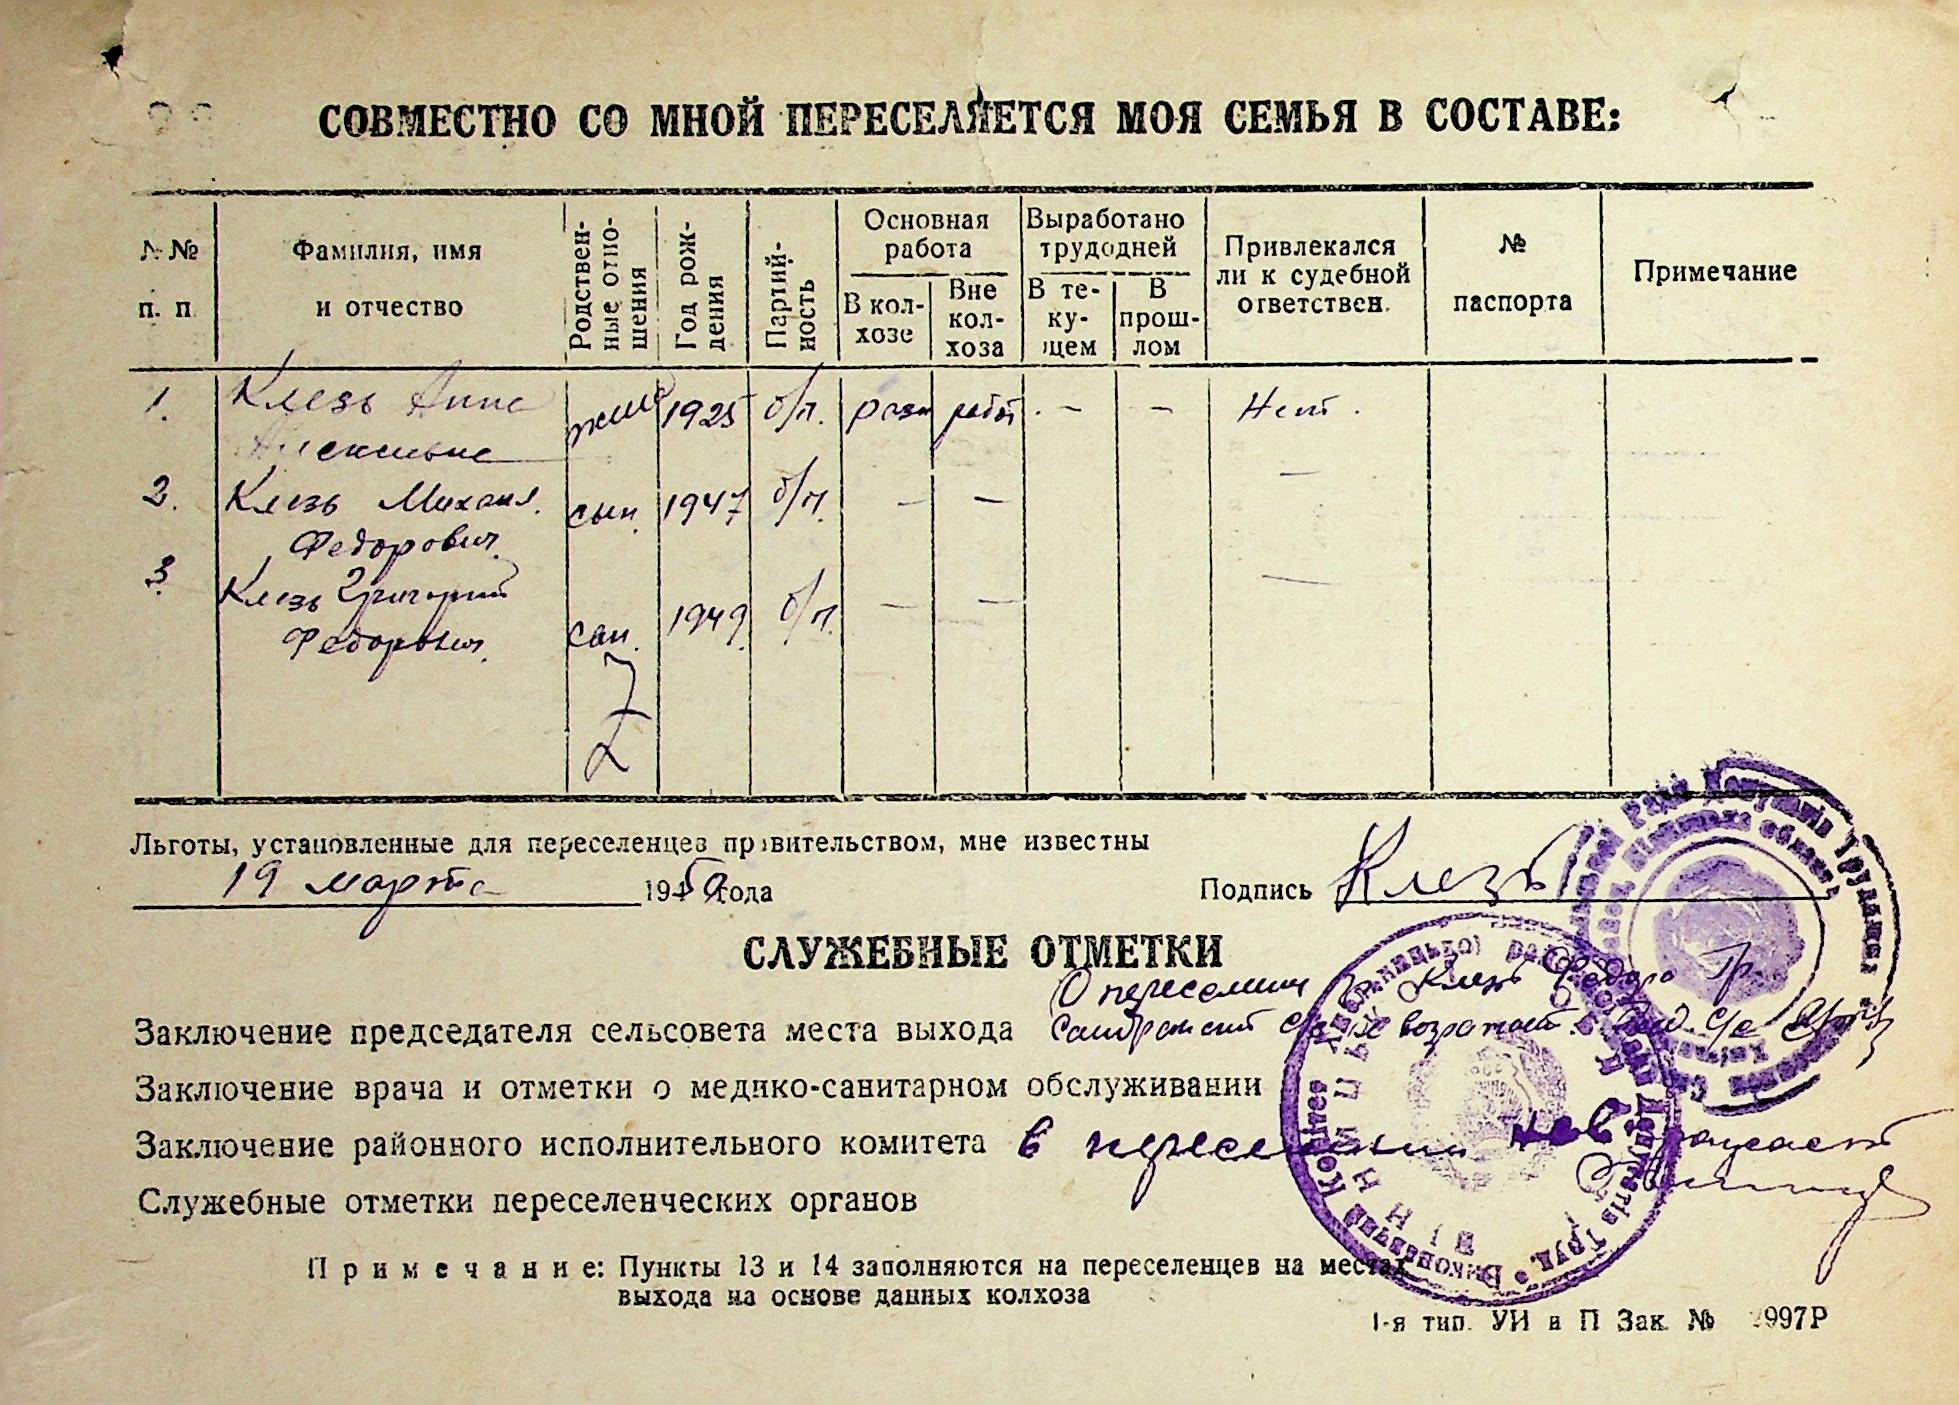 СОВМЕСТНО СО МНОЙ ПЕРЕСЕЛЯЕТСЯ МОЯ СЕМЬЯ В СОСТАВЕ:
№№ п. п.
Фамилия, имя и отчество
Родственные отношения
Год рождения
Партийность
Основная работа
В колхозе
Вне колхоза
Выработано трудодней
В текущем
В прошлом
Привлекался ли к судебной ответствен.
№ паспорта
Примечание
1. Клезь Анна жена 1925 б/п. разн работ - - Нет.
2. Клезь Михаил сын. 1947 б/п. - - -
Федорович
3. Клезь Григорий сын. 1949 б/п. - - -
Федорович
Z
Льготы, установленные для переселенцев правительством, мне известны
19 марта 1950 года Подпись Клезь
СЛУЖЕБНЫЕ ОТМЕТКИ
О переселении Клезь Федора Гр.
Заключение председателя сельсовета места выхода
Заключение врача и отметки о медико-санитарном обслуживании
Заключение районного исполнительного комитета в переселении не
Служебные отметки переселенческих органов
Примечание: Пункты 13 и 14 заполняются на переселенцев на местах
выхода на основе данных колхоза
1-я тип. УИ и П Зак. № 997Р